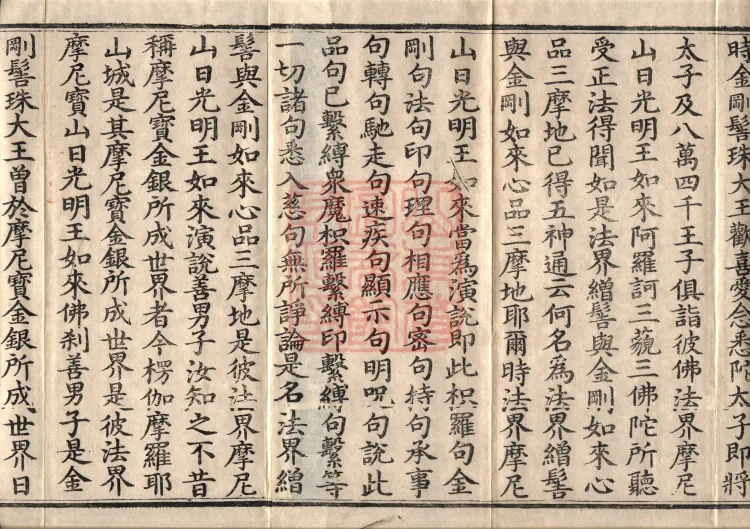 時金剛髻珠大王歡喜愛念悉陀太子即將
太子及八萬四千王子俱詣彼佛法界摩尼
山日光明王如來阿羅訶三藐三佛陀所聽
受正法得聞如是法界繒髻與金剛如來心
品三摩地已得五神通云何名為法界繒髻
與金剛如來心品三摩地耶爾時法界摩尼
山日光明王如來當為演說即此枳羅句金
剛句法句印句理句相應句密句持句承事
句轉句馳走句速疾句顯示句明呪句說此
品句已繫縛衆魔枳羅繫縛印繫縛句繫等
一切諸句悉入慈句無所諍論是名法界繒
髻與金剛如來心品三摩地是彼法界摩尼
山日光明王如來演說善男子汝知之不昔
稱摩尼寶金銀所成世界者今楞伽摩羅耶
山城是其摩尼寶金銀所成世界是彼法界
摩尼寶山日光明王如來佛刹善男子是金
剛髻珠大王曾於摩尼寶金銀所成世界日